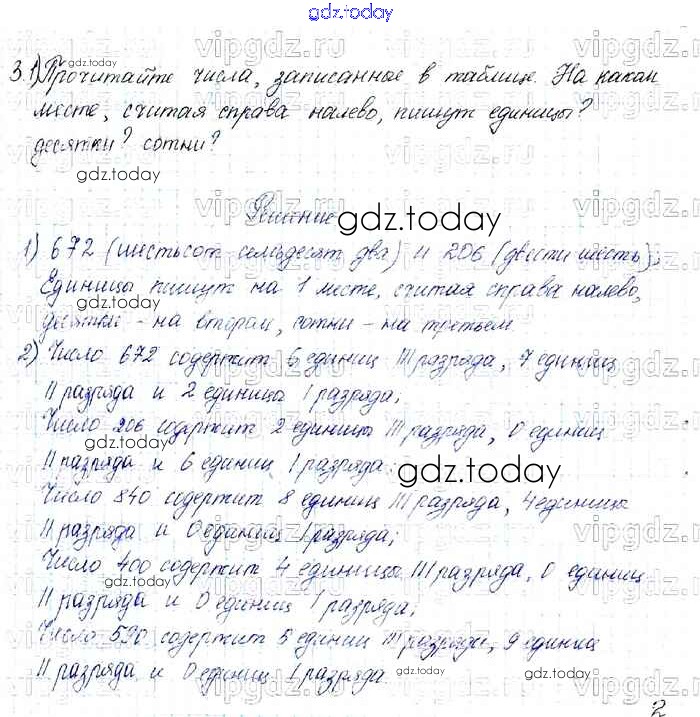 gdz.today
3.1) Прочитайте числа, записанные в таблице. На каком
месте, считая справа налево, пишут единицы?
десятки? сотни?
gdz.today
Решение
gdz.today
1) 672 (шестьсот семьдесят два) и 206 (двести шесть).
Единицы пишут на 1 месте, считая справа налево,
gdz.today
десятки - на втором, сотни - на третьем
2) Число 672 содержит 6 единиц III разряда, 7 единиц
II разряда и 2 единицы I разряда;
Число 206 содержит 2 единицы III разряда, 0 единиц
gdz.today
II разряда и 6 единиц I разряда.
gdz.today
Число 840 содержит 8 единиц III разряда, 4 единицы
II разряда и 0 единиц I разряда;
gdz.today
Число 400 содержит 4 единицы III разряда, 0 единиц
gdz.today
II разряда и 0 единиц I разряда;
Число 590 содержит 5 единиц III разряда, 9 единиц
gdz.today
II разряда и 0 единиц I разряда.
2